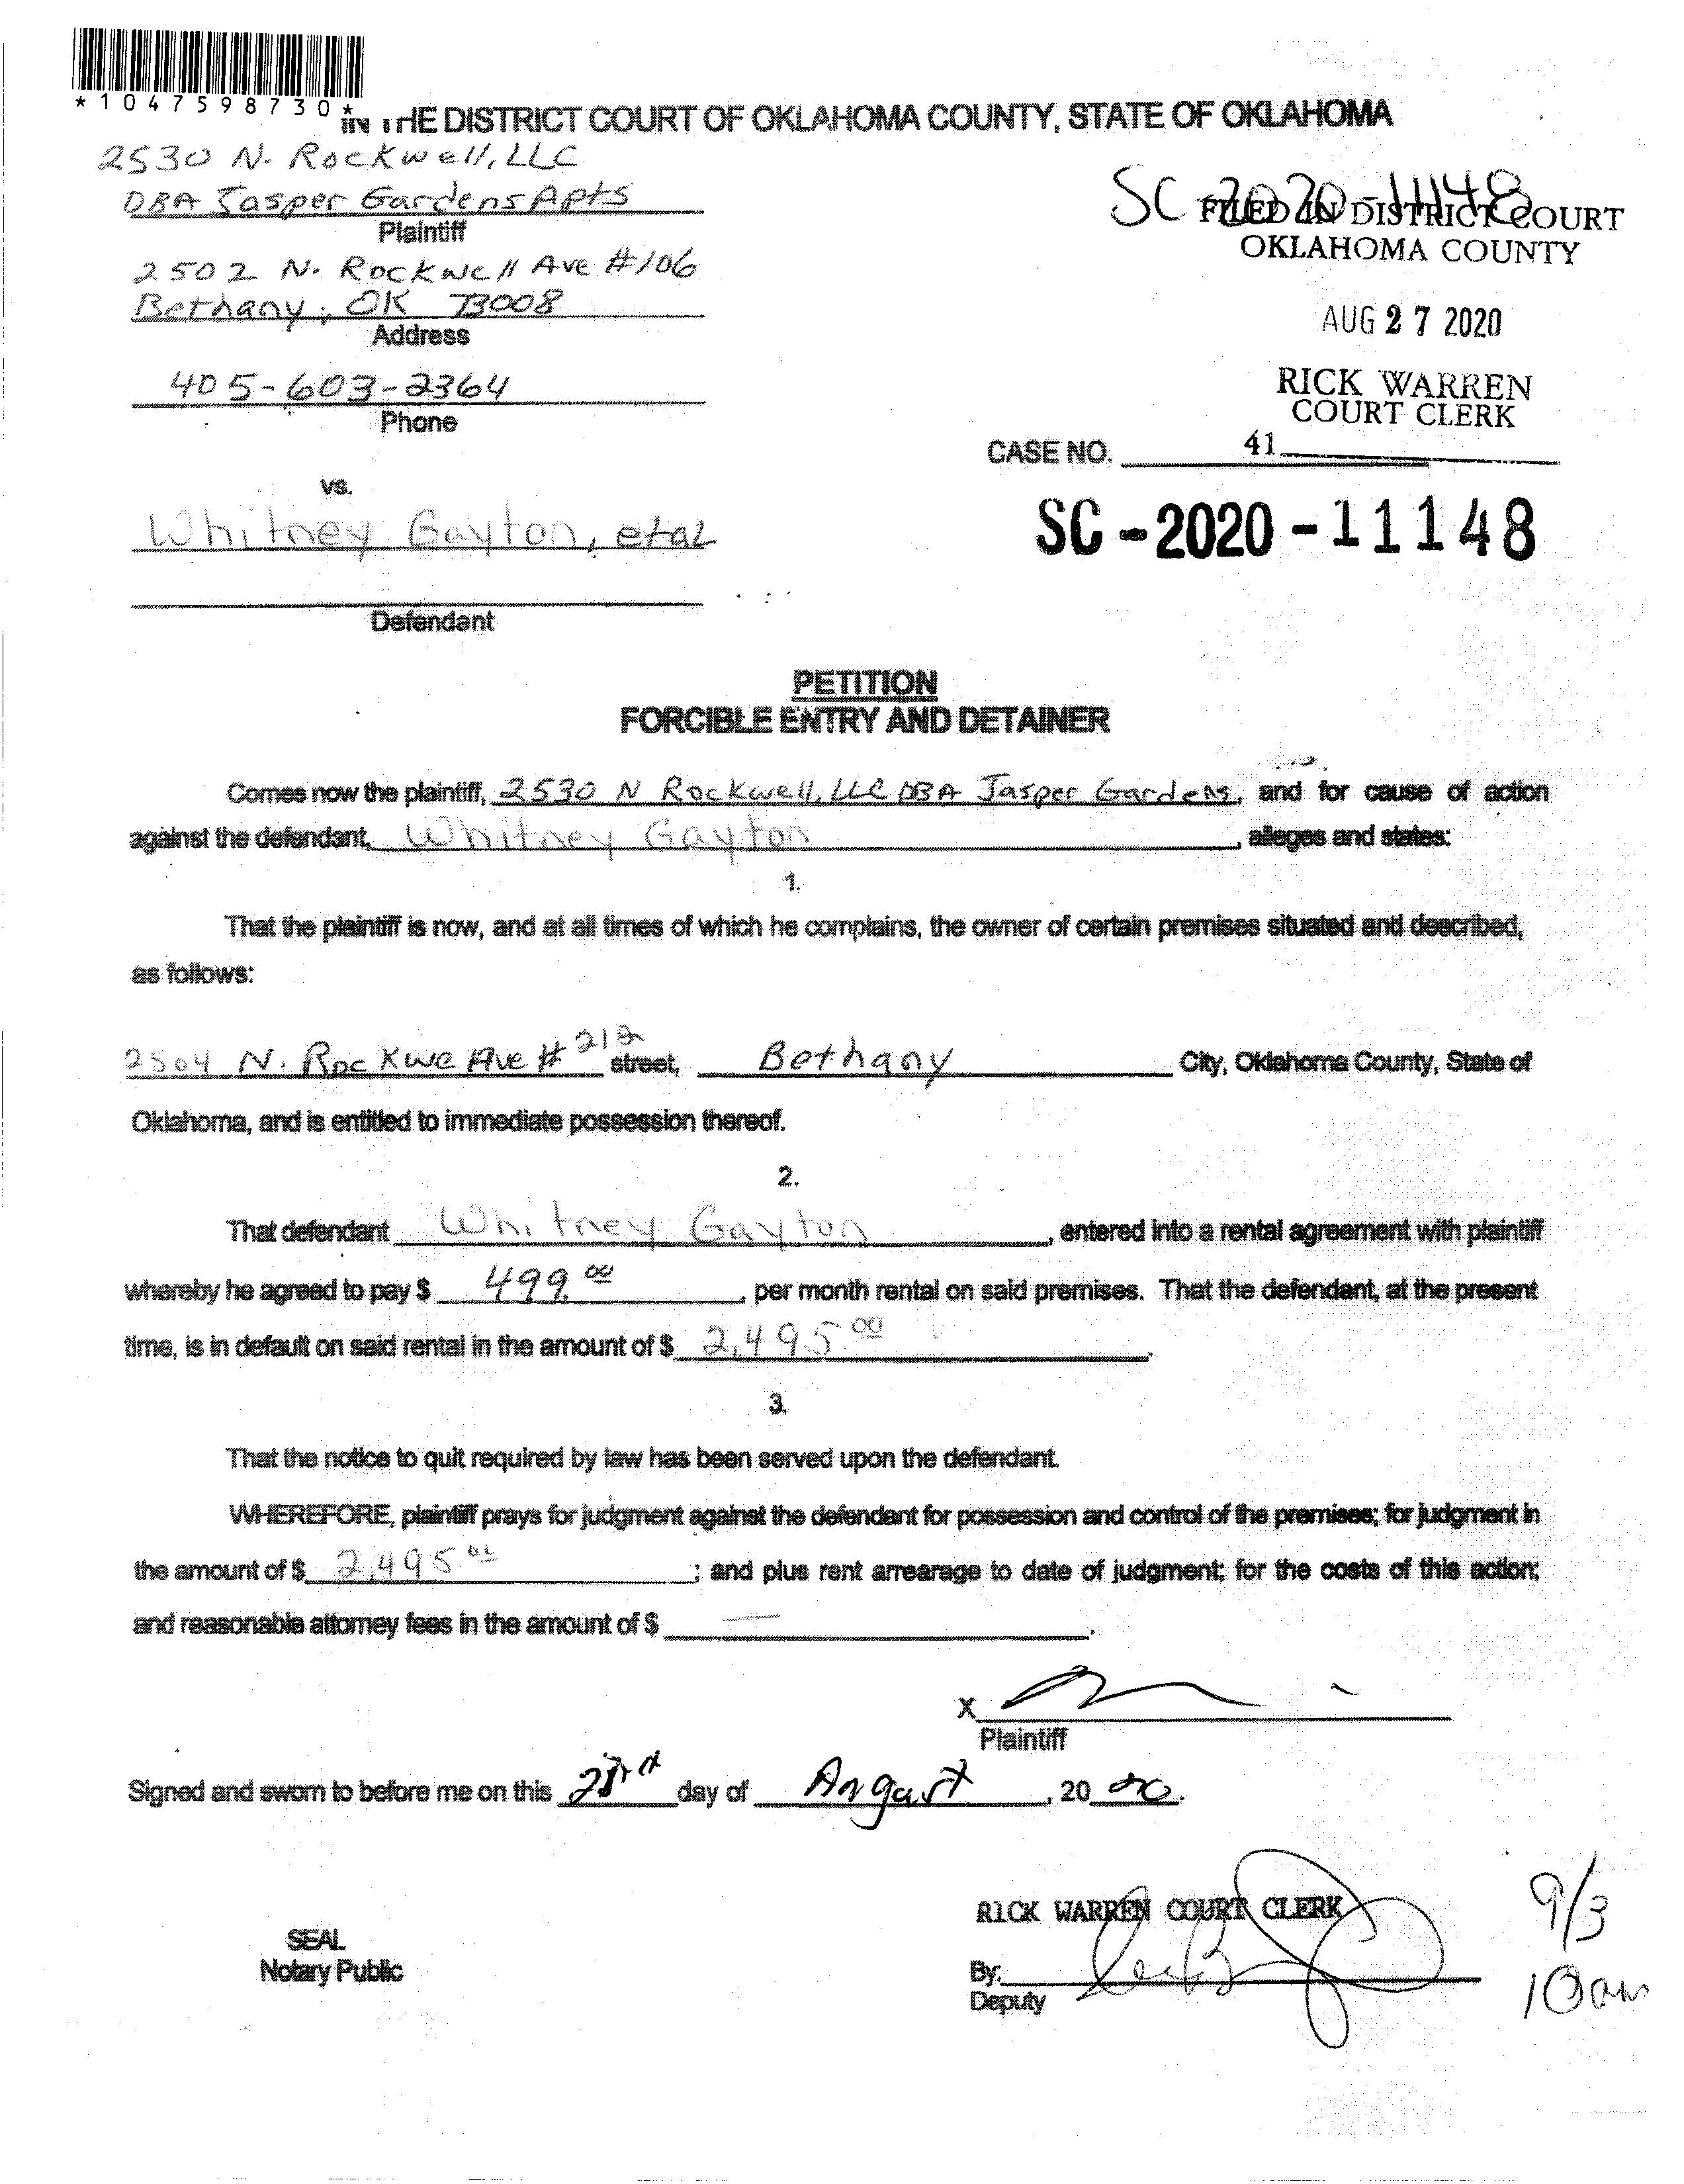 *1047598730*
IN THE DISTRICT COURT OF OKLAHOMA COUNTY, STATE OF OKLAHOMA
2530 N. Rockwell, LLC
DBA Jasper Gardens Apts
Plaintiff
2502 N. Rockwell Ave #106
Bethany, OK 73008
Address
405-603-2364
Phone
SC-2020-11148
FILED IN DISTRICT COURT
OKLAHOMA COUNTY
AUG 27 2020
RICK WARREN
COURT CLERK
41
CASE NO.
SC-2020-11148
vs.
Whitney Gayton, etal
Defendant
PETITION
FORCIBLE ENTRY AND DETAINER
Comes now the plaintiff, 2530 N Rockwell, LLC DBA Jasper Gardens, and for cause of action
against the defendant, Whitney Gayton, alleges and states:
1.
That the plaintiff is now, and at all times of which he complains, the owner of certain premises situated and described,
as follows:
2504 N. Rockwe Ave #212 street, Bethany City, Oklahoma County, State of
Oklahoma, and is entitled to immediate possession thereof.
2.
That defendant Whitney Gayton, entered into a rental agreement with plaintiff
whereby he agreed to pay $ 499.00, per month rental on said premises. That the defendant, at the present
time, is in default on said rental in the amount of $ 2,495 00.
3.
That the notice to quit required by law has been served upon the defendant.
WHEREFORE, plaintiff prays for judgment against the defendant for possession and control of the premises; for judgment in
the amount of $ 2,495 00; and plus rent arrearage to date of judgment; for the costs of this action;
and reasonable attorney fees in the amount of $ —.
X
Plaintiff
Signed and sworn to before me on this day of August, 2020.
SEAL
Notary Public
RICK WARREN COURT CLERK
By:
Deputy
9/3
10am